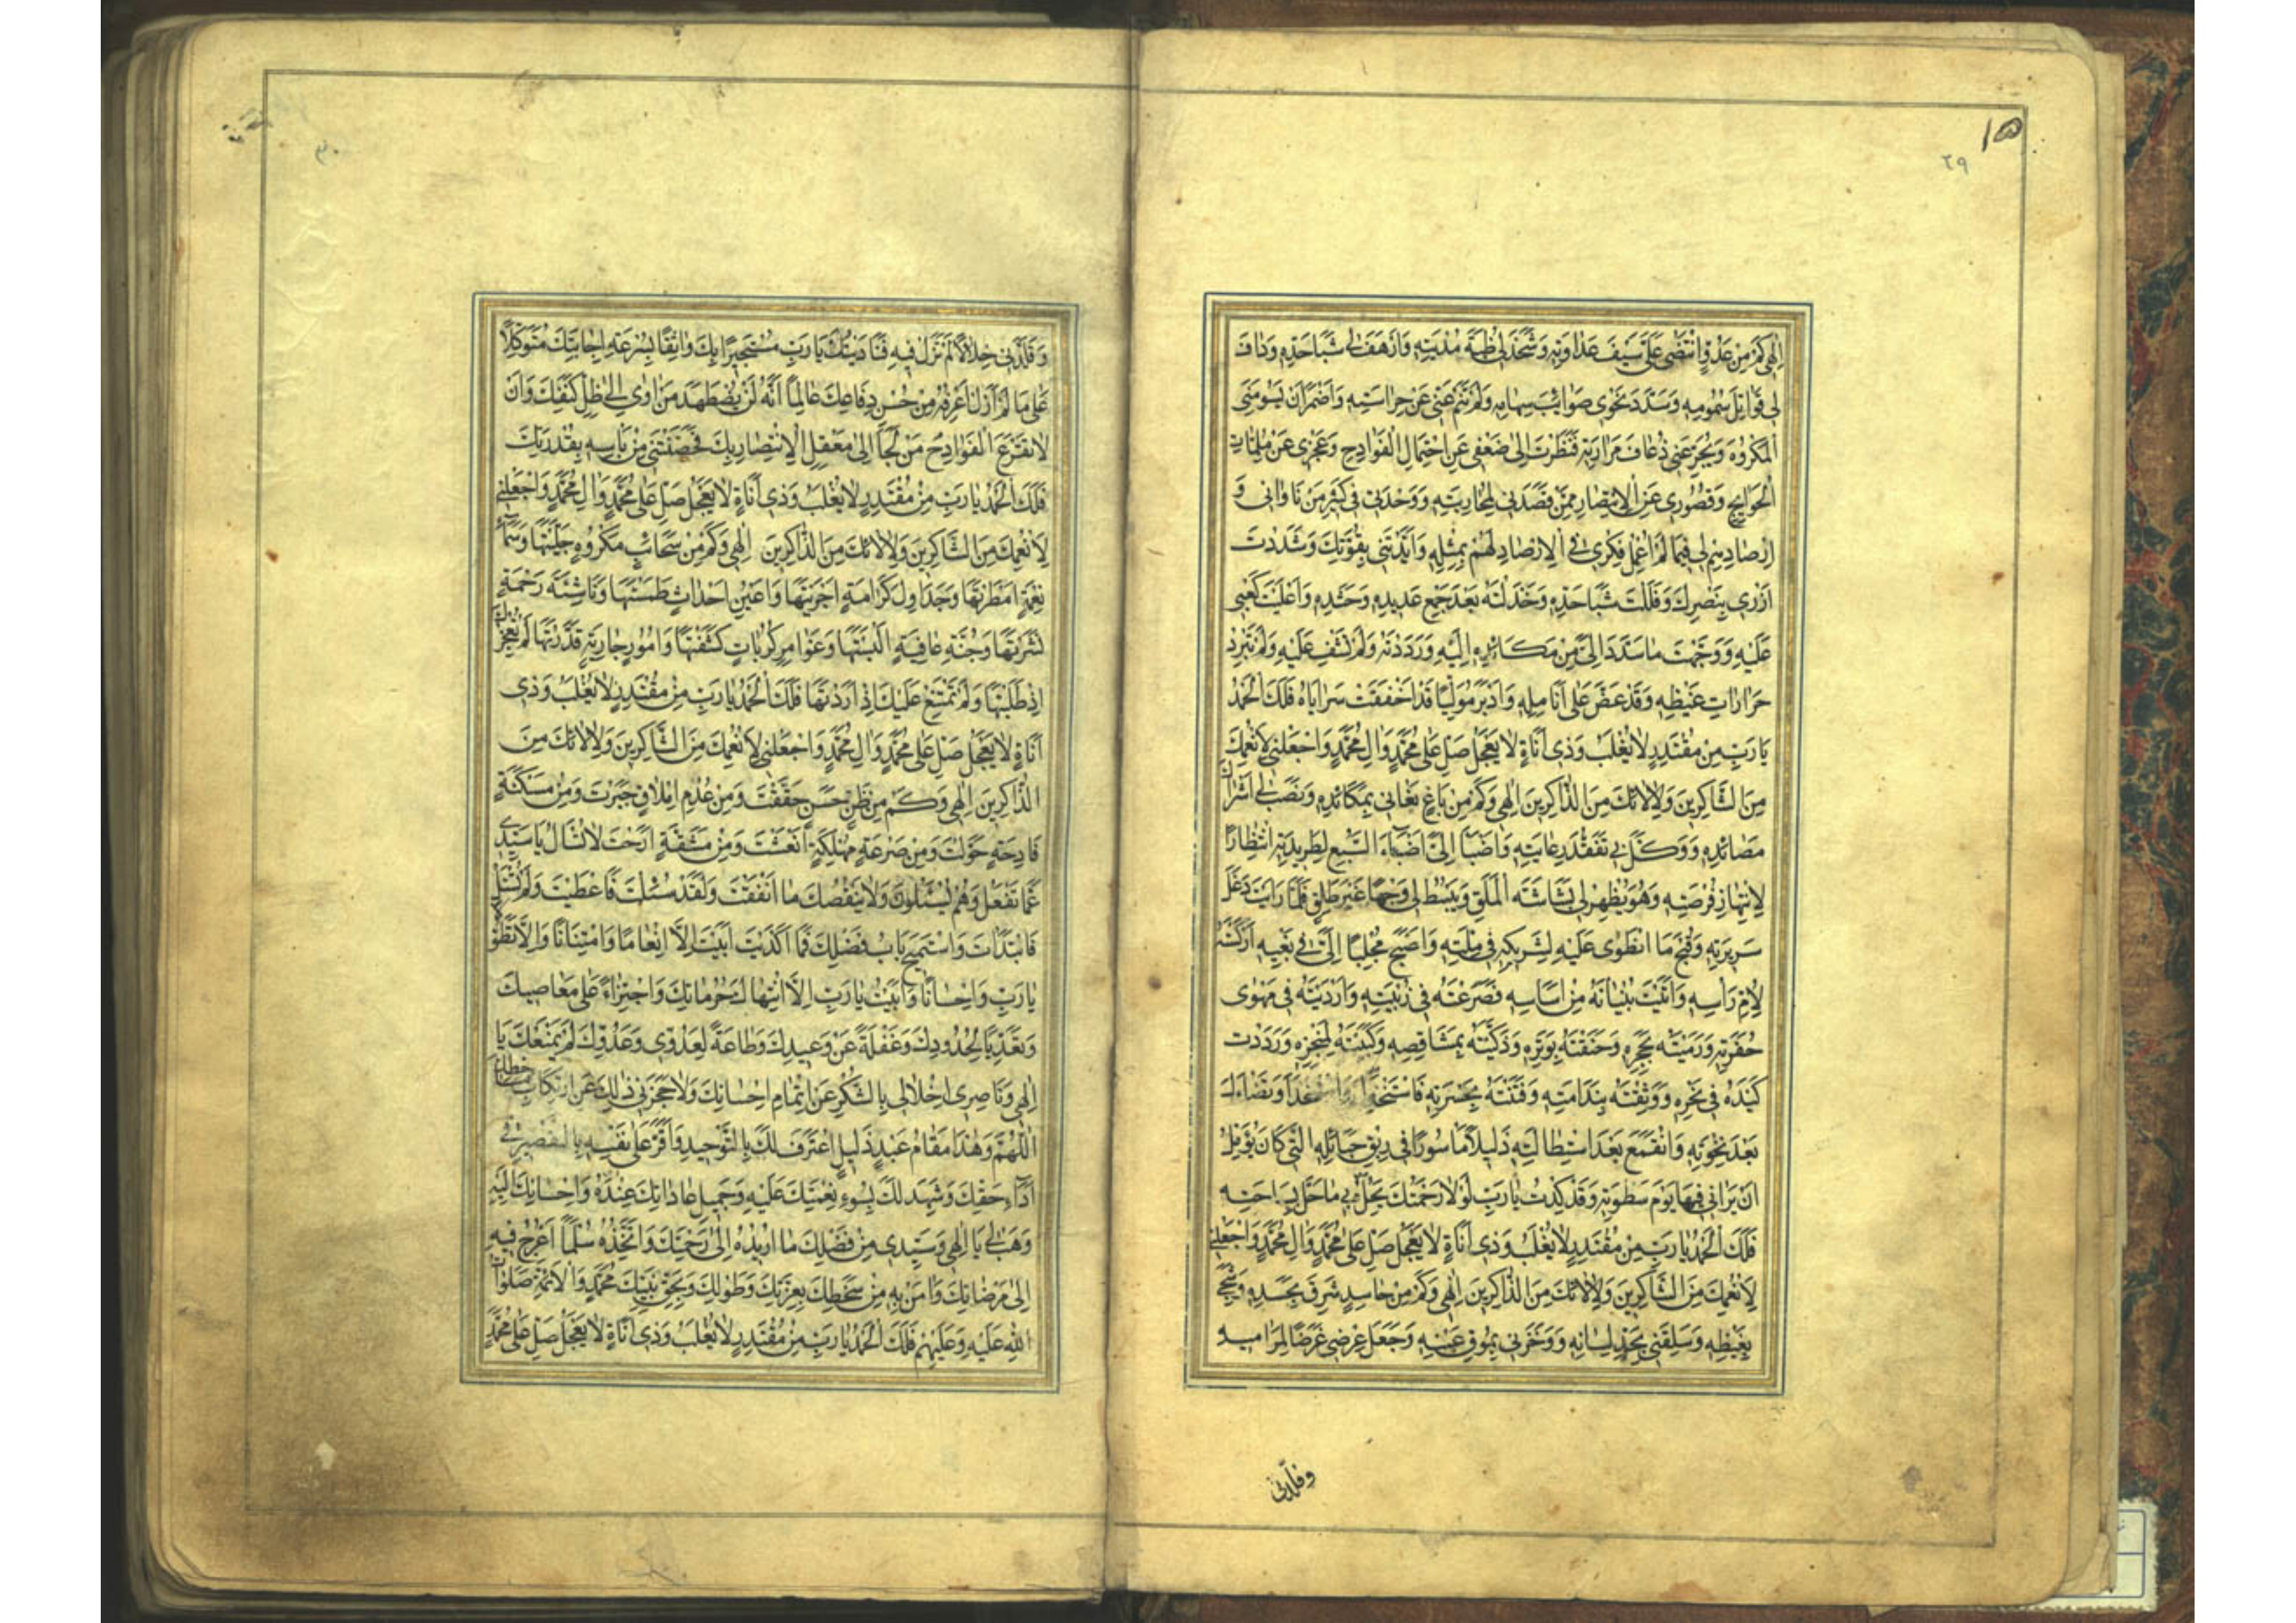 ١٥
٢٩
اِلٰهی کَمْ مِنْ عَدُوٍّ انْتَضٰی عَلَیَّ سَیْفَ عَدٰاوَتِهِ وَشَحَذَ لی ظُبَةَ مُدْیَتِهِ وَاَرْهَفَ لی شَبٰا حَدِّهِ وَدٰافَ
لی قَوٰاتِلَ سُمُومِهِ وَسَدَّدَ نَحْوی صَوٰائِبَ سِهٰامِهِ وَلَمْ تَنَمْ عَنّی عَیْنُ حِرٰاسَتِهِ وَاَضْمَرَ اَنْ یَسُومَنِی
الْمَکْرُوهَ وَیُجَرِّعَنی ذُعٰافَ مَرٰارَتِهِ فَنَظَرْتَ اِلیٰ ضَعْفی عَنِ احْتِمٰالِ الْفَوٰادِحِ وَعَجْزی عَنْ مُلِمّٰاتِ
الْحَوٰایِجِ وَقُصُوری عَنِ الْاِنْتِصٰارِ مِمَّنْ قَصَدَنی لِمُحٰارَبَتِهِ وَوَحْدَتی فی کَثیرِ مَنْ نٰاوٰانی وَ
اِرْصٰادِهِمْ لی فیمٰا لَمْ اُعْمِلْ فِکْری فِی الْاِرْصٰادِ لَهُمْ بِمِثْلِهِ وَاَیَّدْتَنی بِقُوَّتِکَ وَشَدَدْتَ
اَزْری بِنَصْرِکَ وَفَلَلْتَ شَبٰا حَدِّهِ وَخَذَلْتَهُ بَعْدَ جَمْعِ عَدیدِهِ وَحَشْدِهِ وَاَعْلَیْتَ کَعْبی
عَلَیْهِ وَوَجَّهْتَ مٰا سَدَّدَ اِلَیَّ مِنْ مَکٰائِدِهِ اِلَیْهِ وَرَدَدْتَهُ وَلَمْ تَشْفِ عَلَیْهِ وَلَمْ تَبْرُدْ
حَرٰارٰاتِ غَیْظِهِ وَقَدْ عَضَّ عَلیٰ اَنٰامِلِهِ وَاَدْبَرَ مُوَلِّیًا قَدْ اَخْفَقَتْ سَرٰایٰاهُ فَلَکَ الْحَمْدُ
یٰا رَبِّ مِنْ مُقْتَدِرٍ لٰا یُغْلَبُ وَذی اَنٰاةٍ لٰا یَعْجَلُ صَلِّ عَلیٰ مُحَمَّدٍ وَاٰلِ مُحَمَّدٍ وَاجْعَلْنی لِاَنْعُمِکَ
مِنَ الشّٰاکِرینَ وَلِاٰلٰائِکَ مِنَ الذّٰاکِرینَ اِلٰهی وَکَمْ مِنْ بٰاغٍ بَغٰانی بِمَکٰائِدِهِ وَنَصَبَ لی اَشْرٰاکَ
مَصٰائِدِهِ وَوَکَّلَ بی تَفَقُّدَ رِعٰایَتِهِ وَاَضْبَأَ اِلَیَّ اِضْبٰاءَ السَّبُعِ لِطَریدَتِهِ انْتِظٰارًا
لِانْتِهٰازِ فُرْصَتِهِ وَهُوَ یُظْهِرُ لی بَشٰاشَةَ الْمَلَقِ وَیَبْسُطُ لی وَجْهًا غَیْرَ طَلِقٍ فَلَمّٰا رَاَیْتَ دَغَلَ
سَریرَتِهِ وَقُبْحَ مَا انْطَوٰی عَلَیْهِ لِشَریکِهِ فی مِلَّتِهِ وَاَصْبَحَ مُجْلِبًا اِلَیَّ فی بَغْیِهِ اَرْکَسْتَهُ
لِاُمِّ رَاْسِهِ وَاَتَیْتَ بُنْیٰانَهُ مِنْ اَسٰاسِهِ فَصَرَعْتَهُ فی زُبْیَتِهِ وَاَرْدَیْتَهُ فی مَهْوٰی
حُفْرَتِهِ وَرَمَیْتَهُ بِحَجَرِهِ وَخَنَقْتَهُ بِوَتَرِهِ وَذَکَّیْتَهُ بِمَشٰاقِصِهِ وَکَبَبْتَهُ لِمَنْخِرِهِ وَرَدَدْتَ
کَیْدَهُ فی نَحْرِهِ وَوَثِقْتَهُ بِنَدٰامَتِهِ وَفَتَنْتَهُ بِحَسْرَتِهِ وَتَضٰاءَلَ
بَعْدَ نَخْوَتِهِ وَانْقَمَعَ بَعْدَ اسْتِطٰالَتِهِ ذَلیلًا مَاْسُورًا فی رِبْقِ حَبٰائِلِهِ الَّتی کٰانَ یُؤَمِّلُ
اَنْ یَرٰانی فیهٰا یَوْمَ سَطْوَتِهِ وَقَدْ کِدْتُ یٰا رَبِّ لَوْلٰا رَحْمَتُکَ یَحِلُّ بی مٰا حَلَّ بِسٰاحَتِهِ
فَلَکَ الْحَمْدُ یٰا رَبِّ مِنْ مُقْتَدِرٍ لٰا یُغْلَبُ وَذی اَنٰاةٍ لٰا یَعْجَلُ صَلِّ عَلیٰ مُحَمَّدٍ وَاٰلِ مُحَمَّدٍ وَاجْعَلْنی
لِاَنْعُمِکَ مِنَ الشّٰاکِرینَ وَلِاٰلٰائِکَ مِنَ الذّٰاکِرینَ اِلٰهی وَکَمْ مِنْ حٰاسِدٍ شَرِقَ بِحَسَدِهِ وَشَجِیَ
بِغَیْظِهِ وَسَلَقَنی بِحَدِّ لِسٰانِهِ وَوَخَزَنی بِمُوقِ عَیْنِهِ وَجَعَلَ عِرْضی غَرَضًا لِمَرٰامیهِ
وقلّدنی
٣٠
وَقَلَّدَنی خِلٰالًا لَمْ تَزَلْ فیهِ فَنٰادَیْتُکَ یٰا رَبِّ مُسْتَجیرًا بِکَ وٰاثِقًا بِسُرْعَةِ اِجٰابَتِکَ مُتَوَکِّلًا
عَلیٰ مٰا لَمْ اَزَلْ اَعْرِفُهُ مِنْ حُسْنِ دِفٰاعِکَ عٰالِمًا اَنَّهُ لَنْ یُضْطَهَدَ مَنْ اَوٰی اِلیٰ ظِلِّ کَنَفِکَ وَاَنْ
لٰا تَقْرَعَ الْفَوٰادِحُ مَنْ لَجَأَ اِلیٰ مَعْقِلِ الْاِنْتِصٰارِ بِکَ فَحَصَّنْتَنی مِنْ بَاْسِهِ بِقُدْرَتِکَ
فَلَکَ الْحَمْدُ یٰا رَبِّ مِنْ مُقْتَدِرٍ لٰا یُغْلَبُ وَذی اَنٰاةٍ لٰا یَعْجَلُ صَلِّ عَلیٰ مُحَمَّدٍ وَاٰلِ مُحَمَّدٍ وَاجْعَلْنی
لِاَنْعُمِکَ مِنَ الشّٰاکِرینَ وَلِاٰلٰائِکَ مِنَ الذّٰاکِرینَ اِلٰهی وَکَمْ مِنْ سَحٰائِبِ مَکْرُوهٍ جَلَّیْتَهٰا وَسَمٰاءِ
نِعْمَةٍ اَمْطَرْتَهٰا وَجَدٰاوِلِ کَرٰامَةٍ اَجْرَیْتَهٰا وَاَعْیُنِ اَحْدٰاثٍ طَمَسْتَهٰا وَنٰاشِئَةِ رَحْمَةٍ
نَشَرْتَهٰا وَجُنَّةِ عٰافِیَةٍ اَلْبَسْتَهٰا وَغَوٰامِرِ کُرُبٰاتٍ کَشَفْتَهٰا وَاُمُورٍ جٰارِیَةٍ قَدَّرْتَهٰا لَمْ تُعْجِزْکَ
اِذْ طَلَبْتَهٰا وَلَمْ تَمْتَنِعْ عَلَیْکَ اِذْ اَرَدْتَهٰا فَلَکَ الْحَمْدُ یٰا رَبِّ مِنْ مُقْتَدِرٍ لٰا یُغْلَبُ وَذی
اَنٰاةٍ لٰا یَعْجَلُ صَلِّ عَلیٰ مُحَمَّدٍ وَاٰلِ مُحَمَّدٍ وَاجْعَلْنی لِاَنْعُمِکَ مِنَ الشّٰاکِرینَ وَلِاٰلٰائِکَ مِنَ
الذّٰاکِرینَ اِلٰهی وَکَمْ مِنْ ظَنٍّ حَسَنٍ حَقَّقْتَ وَمِنْ عُدْمِ اِمْلٰاقٍ جَبَرْتَ وَمِنْ مَسْکَنَةٍ
فٰادِحَةٍ حَوَّلْتَ وَمِنْ صَرْعَةٍ مُهْلِکَةٍ اَنْعَشْتَ وَمِنْ مَشَقَّةٍ اَرَحْتَ لٰا تُسْاَلُ یٰا سَیِّدی
عَمّٰا تَفْعَلُ وَهُمْ یُسْئَلُونَ وَلٰا یَنْقُصُکَ مٰا اَنْفَقْتَ وَلَقَدْ سُئِلْتَ فَاَعْطَیْتَ وَلَمْ تُسْئَلْ
فَابْتَدَاْتَ وَاسْتُمیحَ بٰابُ فَضْلِکَ فَمٰا اَکْدَیْتَ اَبَیْتَ اِلّٰا اِنْعٰامًا وَامْتِنٰانًا وَاِلّٰا تَطَوُّلًا
یٰا رَبِّ وَاِحْسٰانًا وَاَبَیْتُ یٰا رَبِّ اِلَّا انْتِهٰاکَ حُرُمٰاتِکَ وَاجْتِرٰاءً عَلیٰ مَعٰاصیکَ
وَتَعَدِّیًا لِحُدُودِکَ وَغَفْلَةً عَنْ وَعیدِکَ وَطٰاعَةً لِعَدُوّی وَعَدُوِّکَ لَمْ یَمْنَعْکَ یٰا
اِلٰهی وَنٰاصِری اِخْلٰالی بِالشُّکْرِ عَنْ اِتْمٰامِ اِحْسٰانِکَ وَلٰا حَجَزَنی ذٰلِکَ عَنِ ارْتِکٰابِ
اَللّٰهُمَّ وَهٰذٰا مَقٰامُ عَبْدٍ ذَلیلٍ اعْتَرَفَ لَکَ بِالتَّوْحیدِ وَاَقَرَّ عَلیٰ نَفْسِهِ بِالتَّقْصیرِ فی
اَدٰاءِ حَقِّکَ وَشَهِدَ لَکَ بِسُبُوغِ نِعْمَتِکَ عَلَیْهِ وَجَمیلِ عٰادٰاتِکَ عِنْدَهُ وَاِحْسٰانِکَ اِلَیْهِ
وَهَبْ لی یٰا اِلٰهی وَسَیِّدی مِنْ فَضْلِکَ مٰا اُریدُهُ اِلیٰ رَحْمَتِکَ وَاَتَّخِذُهُ سُلَّمًا اَعْرُجُ فیهِ
اِلیٰ مَرْضٰاتِکَ وَاٰمَنُ بِهِ مِنْ سَخَطِکَ بِعِزَّتِکَ وَطَوْلِکَ وَبِحَقِّ نَبِیِّکَ مُحَمَّدٍ وَالْاَئِمَّةِ صَلَوٰاتُ
اللّٰهِ عَلَیْهِ وَعَلَیْهِمْ فَلَکَ الْحَمْدُ یٰا رَبِّ مِنْ مُقْتَدِرٍ لٰا یُغْلَبُ وَذی اَنٰاةٍ لٰا یَعْجَلُ صَلِّ عَلیٰ مُحَمَّدٍ